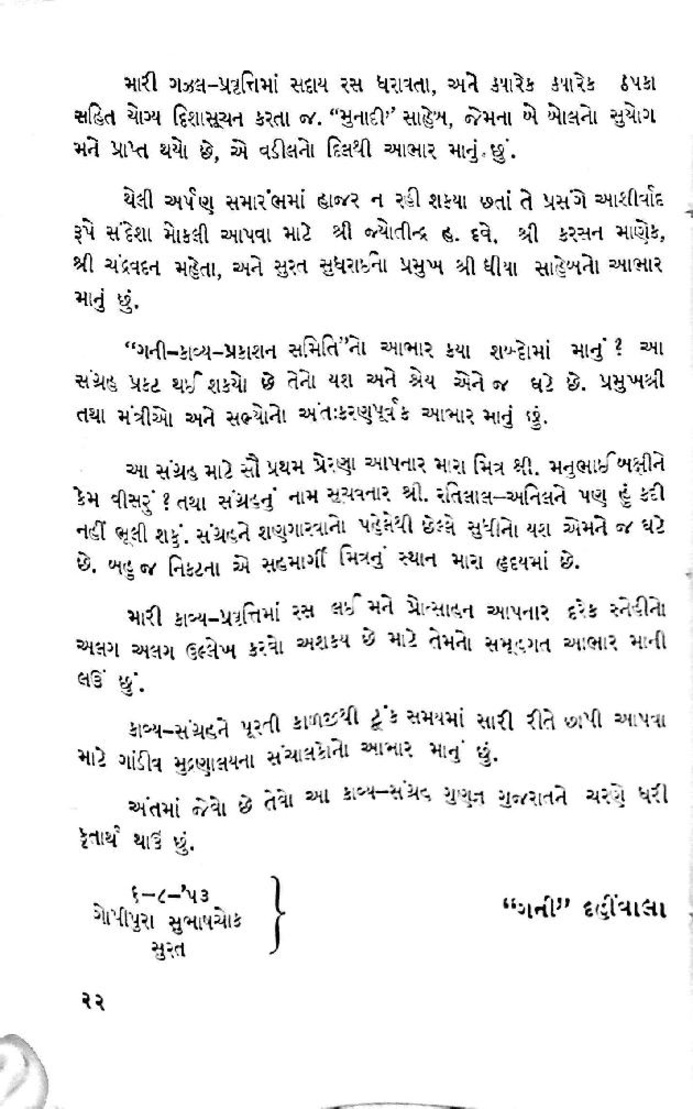 મારી ગઝલ-પ્રવૃત્તિમાં સદાય રસ ધરાવતા, અને ક્યારેક ક્યારેક ઠપકા
સહિત યોગ્ય દિશાસૂચન કરતા જ. “મુનાદી” સાહેબ, જેમના બે બોલનો સુયોગ
મને પ્રાપ્ત થયો છે, એ વડીલનો દિલથી આભાર માનું છું.
થેલી અર્પણ સમારંભમાં હાજર ન રહી શક્યા છતાં તે પ્રસંગે આશીર્વાદ
રૂપે સંદેશા મોકલી આપવા માટે શ્રી જ્યોતીન્દ્ર હ. દવે. શ્રી કરસન માણેક,
શ્રી ચંદ્રવદન મહેતા, અને સુરત સુધરાઈના પ્રમુખ શ્રી ધીયા સાહેબનો આભાર
માનું છું.
“ગની-કાવ્ય-પ્રકાશન સમિતિ”નો આભાર કયા શબ્દોમાં માનું ? આ
સંગ્રહ પ્રકટ થઈ શકયો છે તેનો યશ અને શ્રેય એને જ ઘટે છે. પ્રમુખશ્રી
તથા મંત્રીઓ અને સભ્યોનો અંતઃકરણપૂર્વક આભાર માનું છું.
આ સંગ્રહ માટે સૌ પ્રથમ પ્રેરણા આપનાર મારા મિત્ર શ્રી. મનુભાઈ બક્ષીને
કેમ વીસરું ? તથા સંગ્રહનું નામ સૂચવનાર શ્રી. રતિલાલ-અનિલને પણ હું કદી
નહીં ભૂલી શકું. સંગ્રહને શણગારવાનો પહેલેથી છેલ્લે સુધીનો યશ એમને જ ઘટે
છે. બહુ જ નિકટના એ સહમાર્ગી મિત્રનું સ્થાન મારા હૃદયમાં છે.
મારી કાવ્ય-પ્રવૃત્તિમાં રસ લઈ મને પ્રોત્સાહન આપનાર દરેક સ્નેહીનો
અલગ અલગ ઉલ્લેખ કરવો અશકય છે માટે તેમનો સમૂહગત આભાર માની
લઉં છું.
કાવ્ય-સંગ્રહને પૂરતી કાળજીથી ટૂંક સમયમાં સારી રીતે છાપી આપવા
માટે ગાંડીવ મુદ્રણાલયના સંચાલકોનો આભાર માનું છું.
અંતમાં જેવો છે તેવો આ કાવ્ય-સંગ્રહ ગુણજ્ઞ ગુજરાતને ચરણે ધરી
કૃતાર્થ થાઉં છું.
૬-૮-’૫૩
ગોપીપુરા સુભાષચોક
સુરત
“ગની” દહીંવાલા
૨૨